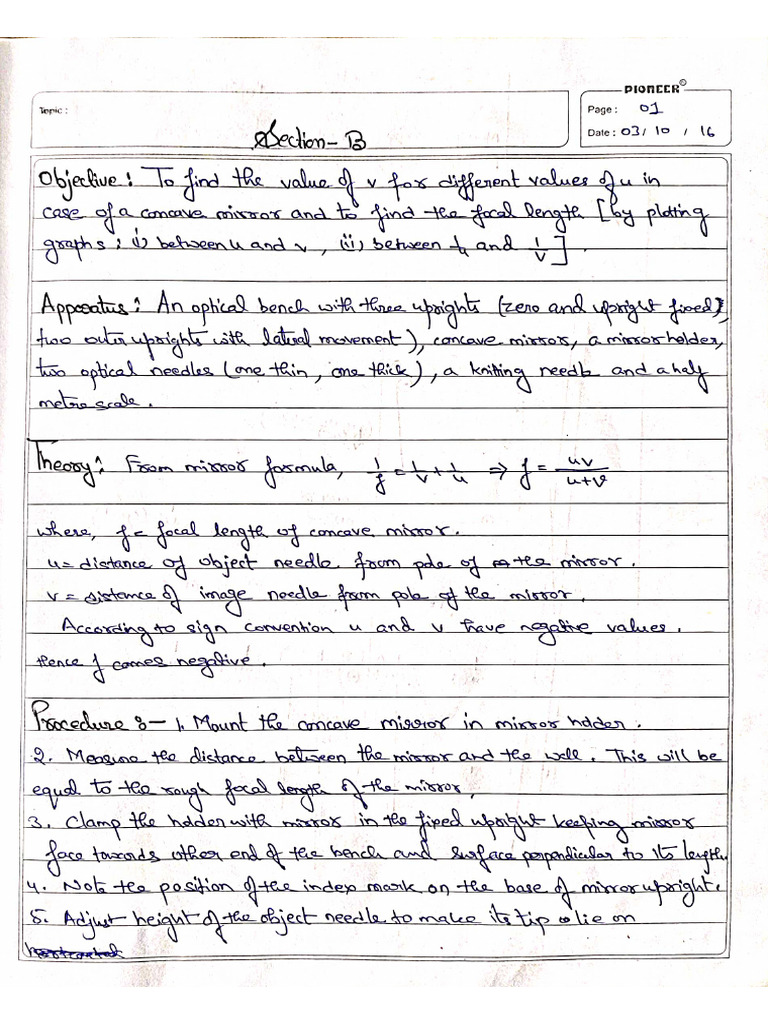 PIONEER
Topic :
Page : 01
Section - B
Date : 03/ 10 / 16
Objective : To find the value of v for different values of u in
case of a concave mirror and to find the focal length [by plotting
graphs ; i) between u and v , (ii) between 1/u and 1/v ] .
Apparatus : An optical bench with three uprights (zero end upright fixed),
two outer uprights with lateral movement), concave mirror, a mirror holder,
two optical needles (one thin, one thick), a knitting needle and a half
metre scale.
Theory : From mirror formula, 1/f = 1/v + 1/u ⇒ f = uv/u+v
where, f = focal length of concave mirror.
u = distance of object needle from pole of the mirror.
v = distance of image needle from pole of the mirror.
According to sign convention u and v have negative values.
Hence f comes negative.
Procedure :- 1. Mount the concave mirror in mirror holder.
2. Measure the distance between the mirror and the wall. This will be
equal to the rough focal length of the mirror.
3. Clamp the holder with mirror in the fixed upright keeping mirror
face towards other end of the bench and surface perpendicular to its length.
4. Note the position of the index mark on the base of mirror upright.
5. Adjust height of the object needle to make its tip lie on